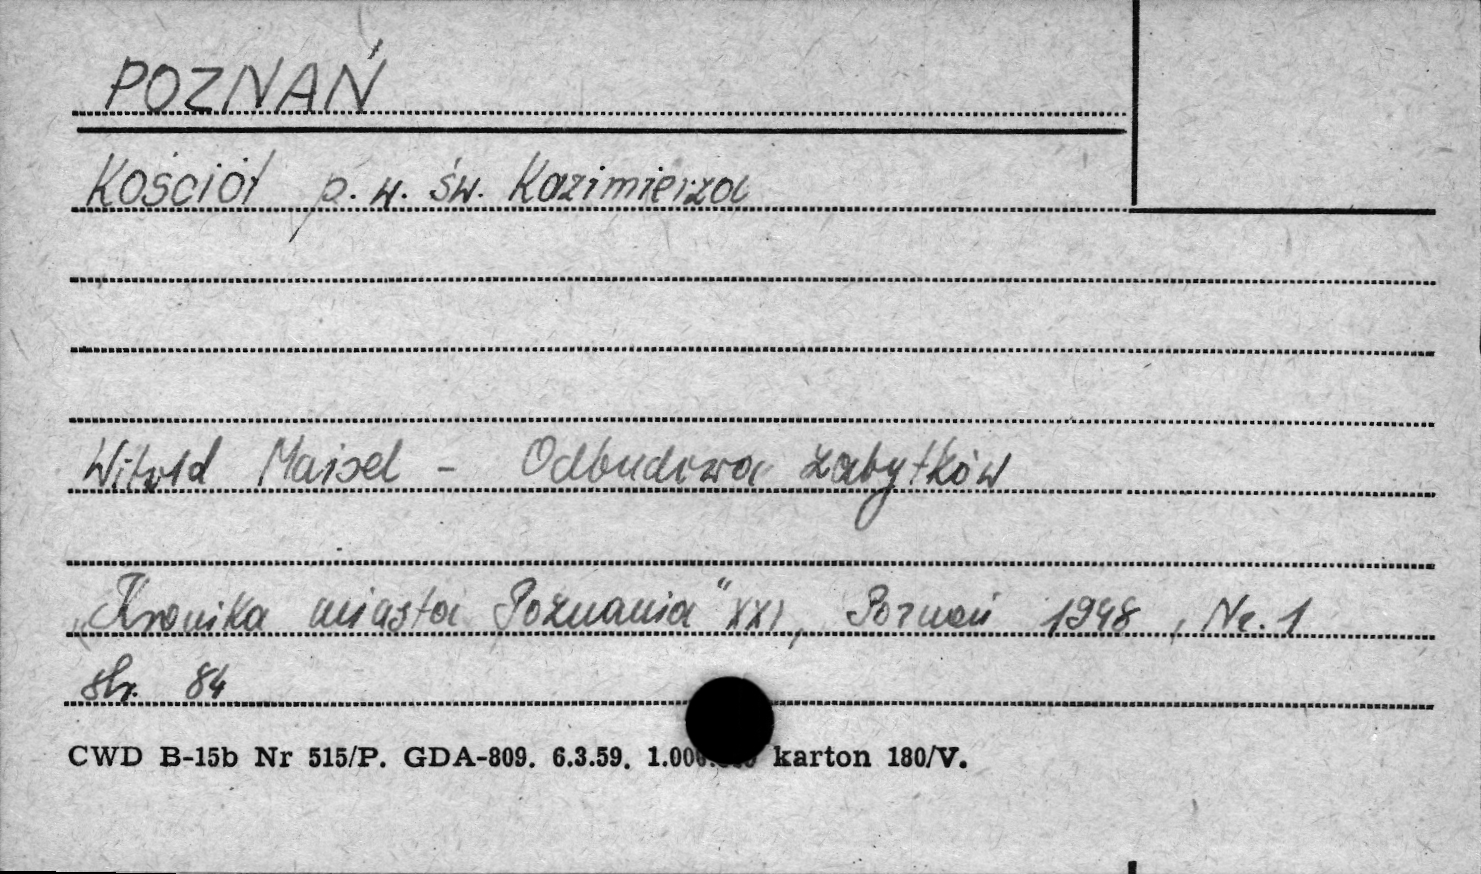 POZNAŃ
Kościół p.w. św. Kazimierza
Witold Maisel - Odbudowa zabytków
„Kronika miasta Poznania" XXI, Poznań 1948, Nr. 1
str. 84
CWD B-15b Nr 515/P. GDA-809. 6.3.59. karton 180/V.